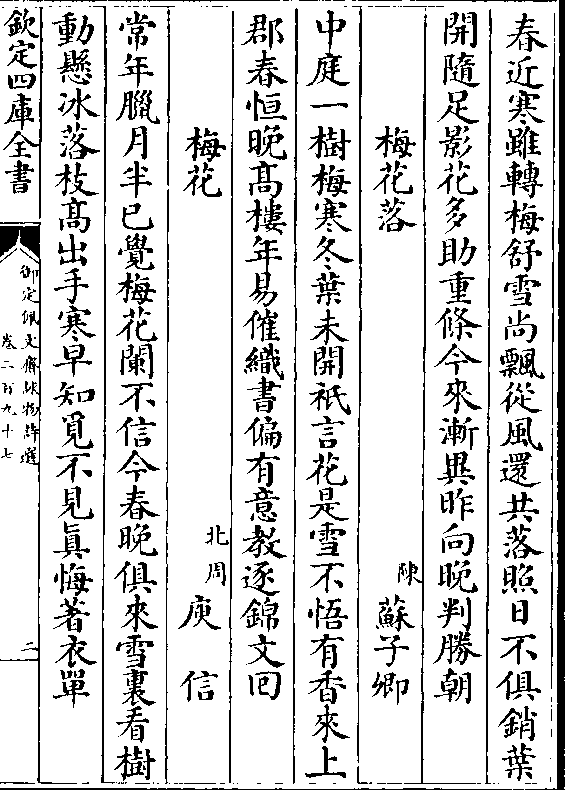 春近寒雖轉梅舒雪尚飄從風還共落照日不俱銷葉
開隨足影花多助重條今來漸異昨向晚判勝朝
梅花落 陳 蘇子卿
中庭一樹梅寒冬葉未開祇言花是雪不悟有香來上
郡春恒晚髙樓年易催織書偏有意教逐錦文囘
梅花 北周 庾信
常年臘月半已覺梅花闌不信今春晚俱來雪裏看樹
動懸冰落枝髙出手寒早知覓不見真悔著衣單
欽定四庫全書
御定佩文齋詠物詩選
卷二百九十七
二